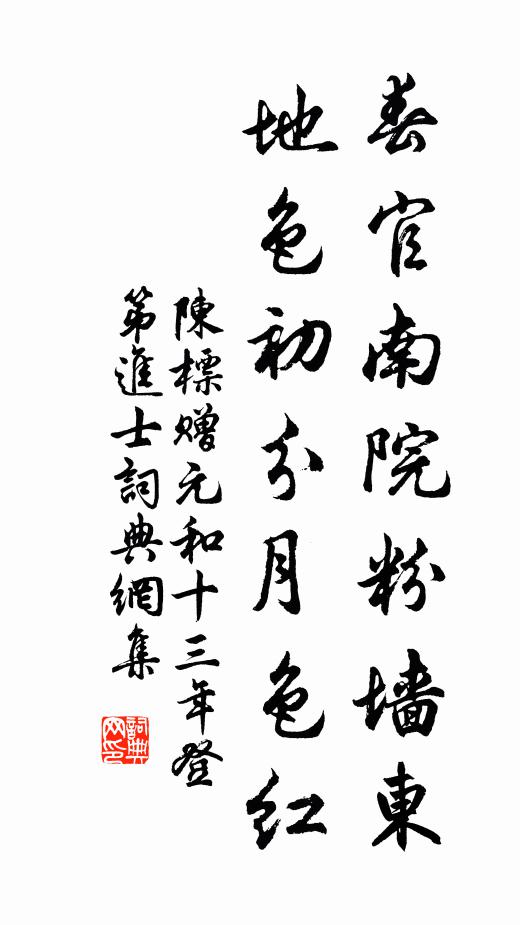 春官南院粉墙東
地色初分月色红
陳標赠元和十三年登
第進士詞典網集
詞典网印